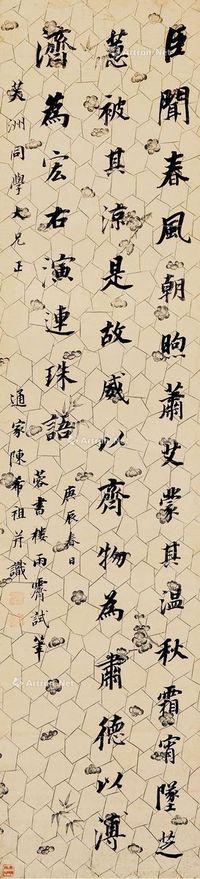 臣聞春風朝煦蕭艾蒙其温秋霜宵墜芝
蕙被其涼是故威以齊物為肅德以溥
濟為宏右演連珠語
庚辰春日
蓉書樓雨霽試筆
芙洲同學大兄正
通家陳希祖并識